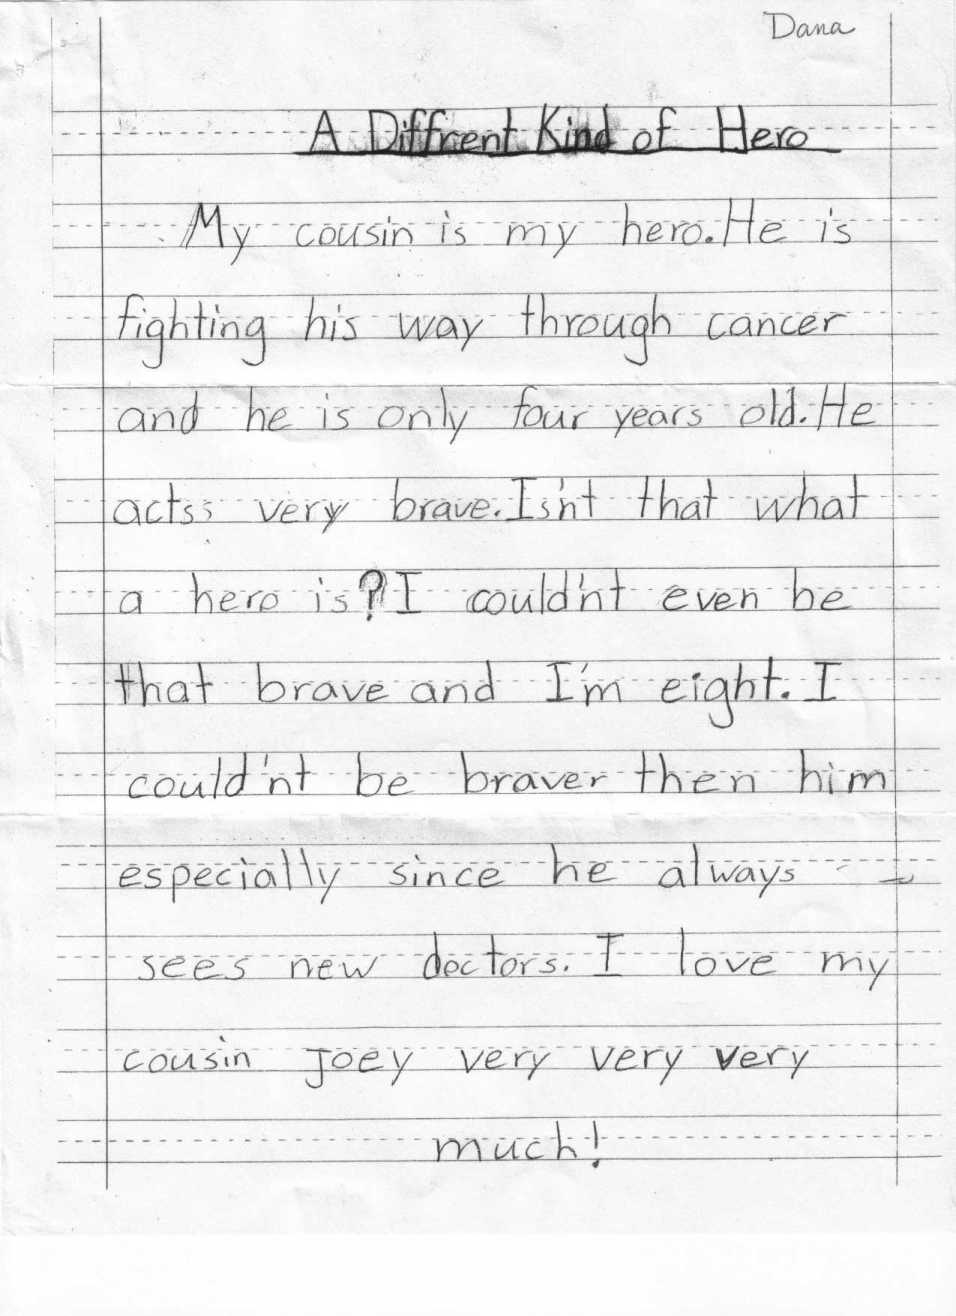 Dana
A Diffrent Kind of Hero
My cousin is my hero. He is
fighting his way through cancer
and he is only four years old. He
actss very brave. Is'nt that what
a hero is? I could'nt even be
that brave and I'm eight. I
could'nt be braver then him
especially since he always
sees new doctors. I love my
cousin Joey very very very
much!